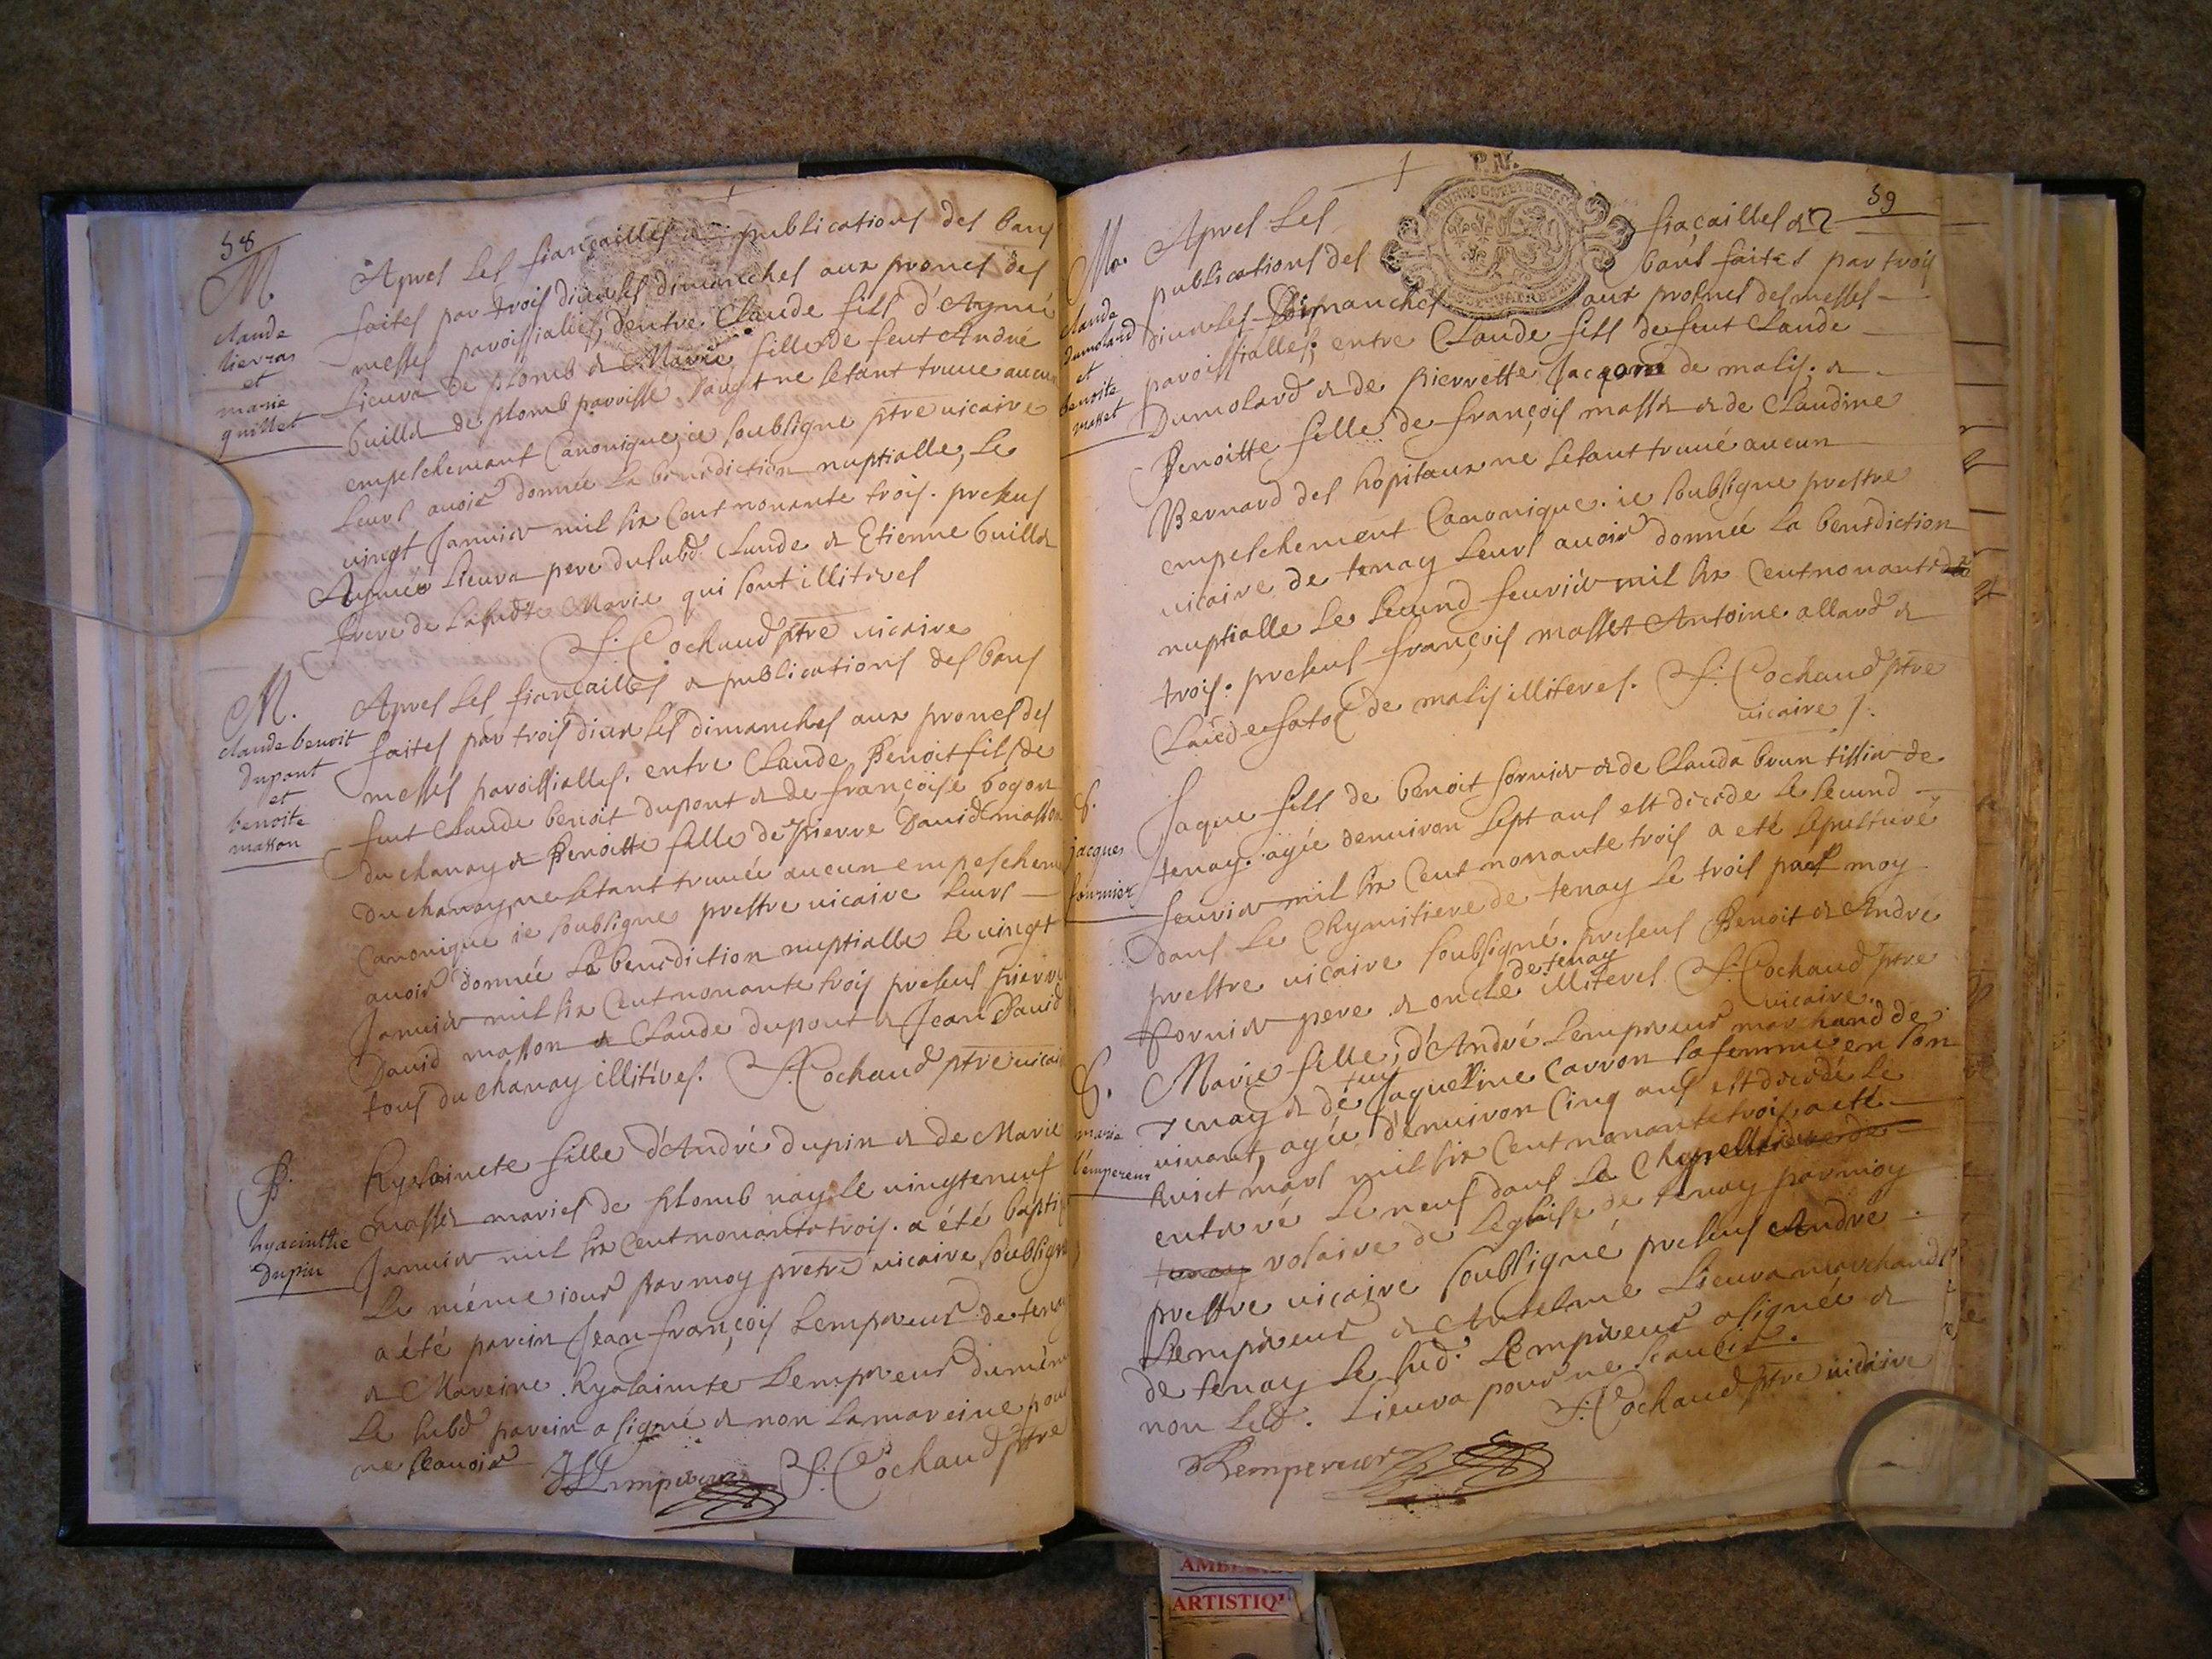 58
M.
claude
lievra
et
marie
guillet
Apres les fiançailles et publications des bans
faites par trois diuerses dimanches aux prones des
messes paroissialles, dentre Claude fils d'Aymé
Lieura de plomb et Marie fille de feut André
Guillet de plomb paroisse ne sétant truué aucun
empeschemant Canonique, ie soubsigne ptre uicaire
leurs auoir donnée La benediction nuptialle, Le
uingt Januier mil six Cent nonante trois. presens
Aymée Lieura pere dusubd. Claude et Etienne Guillet
frere de Lasubdte Marie qui sont illitires
f. Cochaud ptre uicaire
M.
claude benoit
dupont
et
benoite
masson
Apres Les fiançailles et publications des bans
faites par trois diuerses dimanches aux prones des
messes paroissialles. entre Claude Benoit fils de
feut Claude benoit dupont et de françoise bogon
du chanay et Benoitte fille de pierre Dauid masson
du chanay, ne sétant truuée aucun empeschem
Canonique ie soubsigne prestre uicaire Leurs
auoir donnée La benediction nuptialle Le uingt
Januier mil six Cent nonante trois presens pierre
Dauid masson et Claude dupont et Jean Dauid
tous du chanay illitires. f. Cochaud ptre uicai
B.
hyacinthe
dupin
Hyassincte fille d'André dupin et de Marie
masset mariés de plomb nay Le uingteneuf
Januier mil six Cent nonante trois. a été bapti
Le méme iour par moy pretre uicaire soubsign
a été parein Jean françois Lempereur de tenay
et Mareine Hyassainte Lempereur du méme
Le subd parein a signé et non La mareine pour
ne sçauoir
JF Lempereur f. Cochaud ptre
59
P.M.
M.
claude
dumolard
et
benoite
masset
Apres Les fiaçailles et
publications des bans faites par trois
diuerses Dimanches aux prosnes des messes
paroissialles; entre Claude fils de feut Claude
Dumolard et de pierrette Jacqom de malis. et
Benoitte fille de françois masset et de Claudine
Bernard des hopitaux ne sétant truué aucun
empeschement Canonique. ie soubsigne prestre
uicaire de tenay leurs auoir donnée La benediction
nuptialle Le Second feurier mil six Cent nonante
trois. presens françois masset Antoine allard et
de malis illiteres. f. Cochaud ptre
uicaire
S.
jacques
fournier
Jaque fils de benoit fornier et de Clauda brun tissier de
tenay. agée denuiron Sept ans est décéde Le Second
feurier mil six Cent nonante trois a eté sépulturé
dans Le Chymitiere de tenay Le trois par moy
prestre uicaire soubsigné. presens Benoit et André
de tenay
fornier pere et oncle illiteres. f. Cochaud ptre
uicaire.
S.
marie
l'empereur
Marie fille d'André Lempereur marchand de
feu
Tenay et de Jaqueline Carron sa femme en son
uiuant, agée denuiron Cinq ans est décédé Le
huict mars mil six Cent nonante trois, a eté
enterré Le neuf dans Le
tenay rosaire de Leglise de tenay par moy
prestre uicaire soubsigné presens André
Lempereur et Antelme Lieura marchands
de tenay Le sud. Lempereur a signée et
non Led. Lieura pour ne scauoir.
f. Cochaud ptre uicaire
Lempereur
AMB
ARTISTIQ